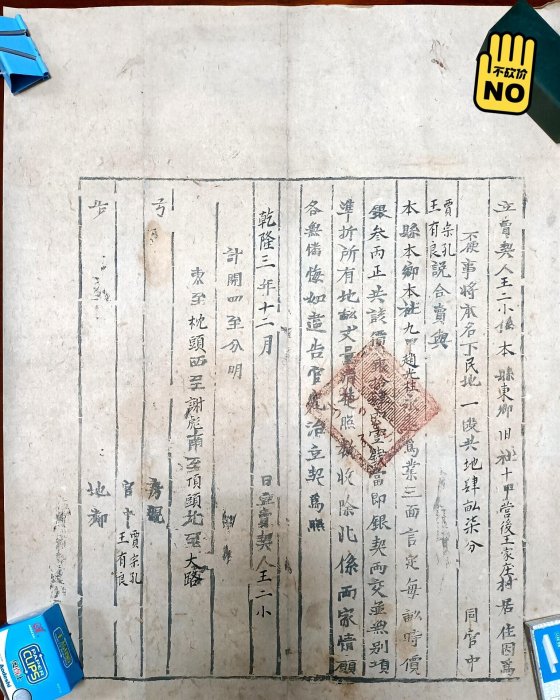 不砍价
NO
立賣契人王二小係本縣東鄉旧社十甲营後王家庄村居住因爲
不便事將本名下民地一段共地肆畝柒分 同官中
賈宗孔
王有良 說合賣與
本縣本鄉本社九甲趙光 永遠爲業三面言定每畝時價
銀叁两正共該價銀拾 壹 當即銀契两交並無別項
準折所有地畝丈量 照數收除此係两家情願
各無憣悔如違告官 治立契爲照
乾隆三年十二月 日立賣契人王二小
計開四至分明
東至枕頭西至謝彪南至頂頭北至大路
弓
房親
官中 賈宗孔
王有良
步
地鄰
CLIPS